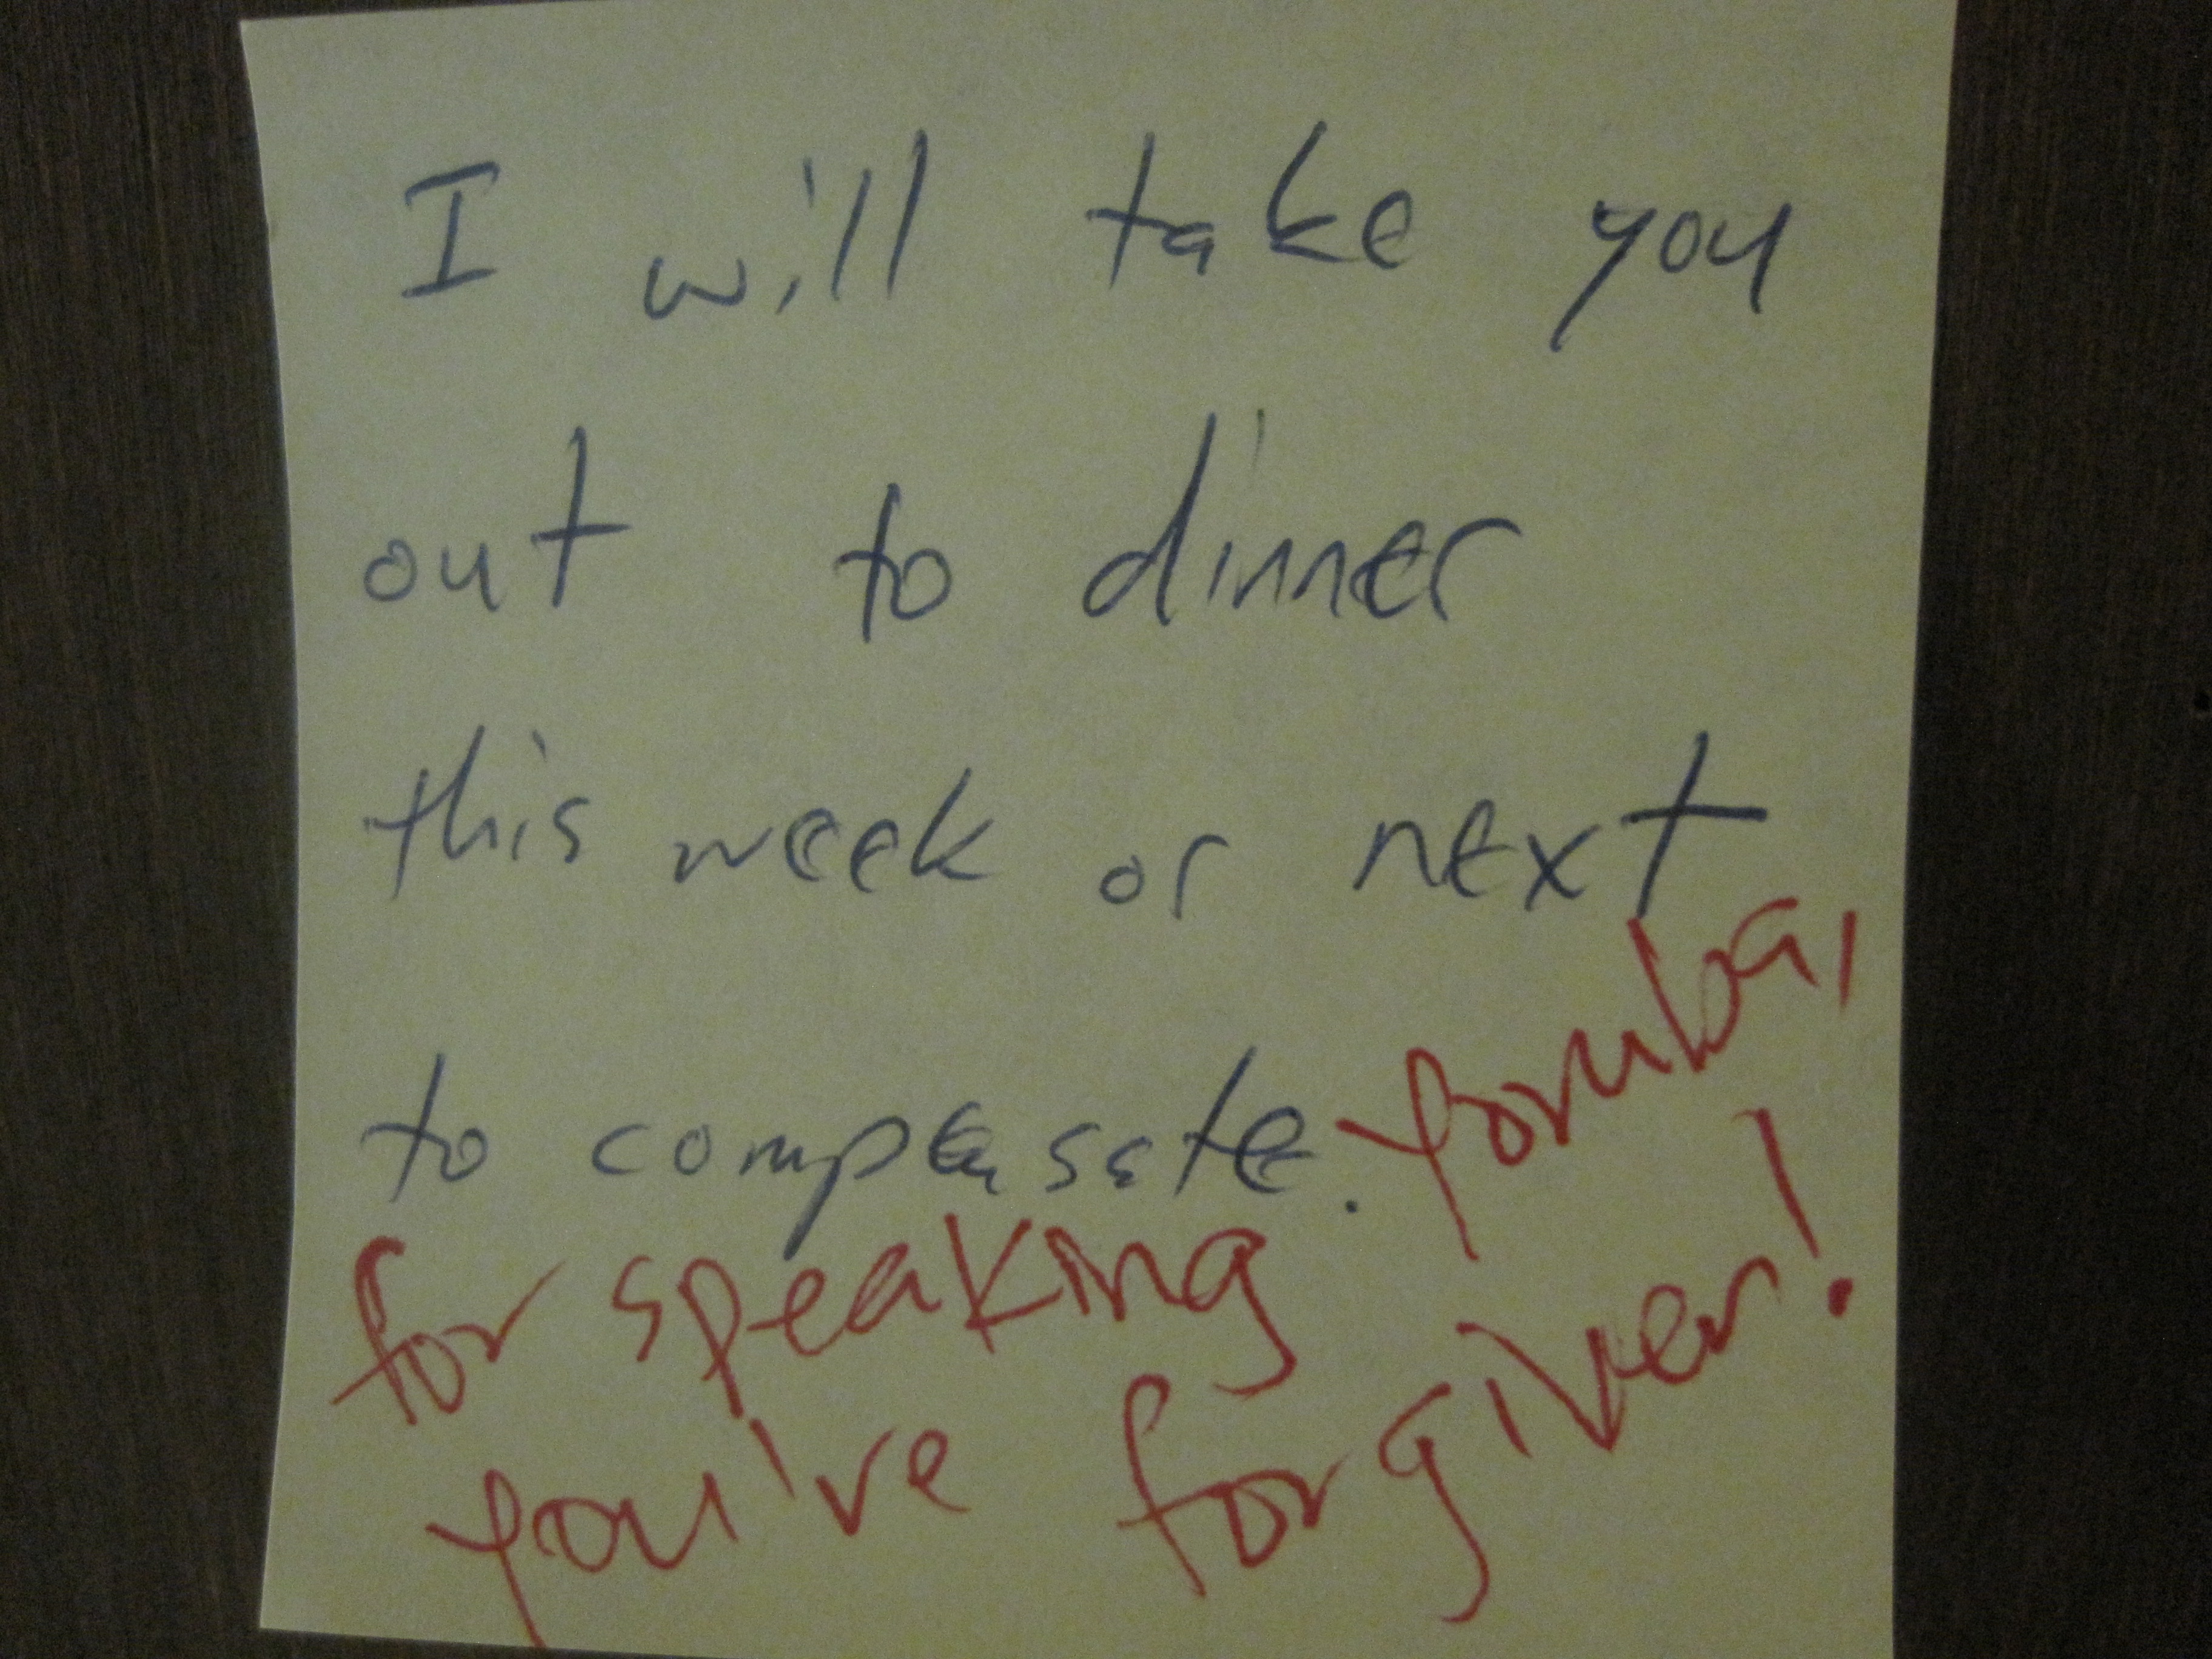 I will take you
out to dinner
this week or next
to compensate.
for speaking Yoruba,
you've forgiven!